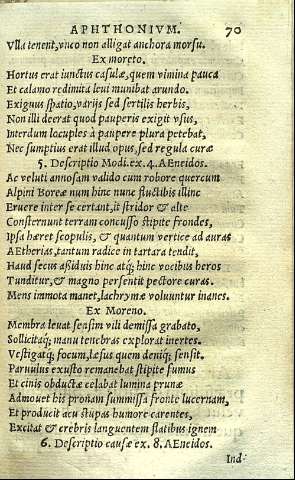 APHTHONIVM. 70
Vlla tenent, vnco non alligat anchora morsu.
Ex moreto.
Hortus erat iunctus casulæ, quem vimina pauca
Et calamo redimita leui munibat arundo.
Exiguus spatio, varijs sed fertilis herbis,
Non illi deerat quod pauperis exigit vsus,
Interdum locuples à paupere plura petebat,
Nec sumptius erat illud opus, sed regula curæ
5. Descriptio Modi. ex. 4. AEneidos.
Ac veluti annosam valido cum robore quercum
Alpini Boreæ num hinc nunc fluctibis illinc
Eruere inter se certant, it stridor & alte
Consternunt terram concusso stipite frondes,
Ipsa hæret scopulis, & quantum vertice ad auras
AEtherias, tantum radice in tartara tendit,
Haud secus aßiduis hinc atq; hinc vocibus heros
Tunditur, & magno persentit pectore curas.
Mens immota manet, lachrymæ voluuntur inanes.
Ex Moreno.
Membra leuat sensim vili demissa grabato,
Sollicitaq; manu tenebras explorat inertes.
Vestigatq; focum, læsus quem deniq; sensit.
Paruulus exusto remanebat stipite fumus
Et cinis obductæ celabat lumina prunæ
Admouet his pronam summissa fronte lucernam,
Et producit acu stupas humore carentes,
Excitat & crebris languentem flatibus ignem
6. Descriptio causæ ex. 8. AEneidos.
Ind-